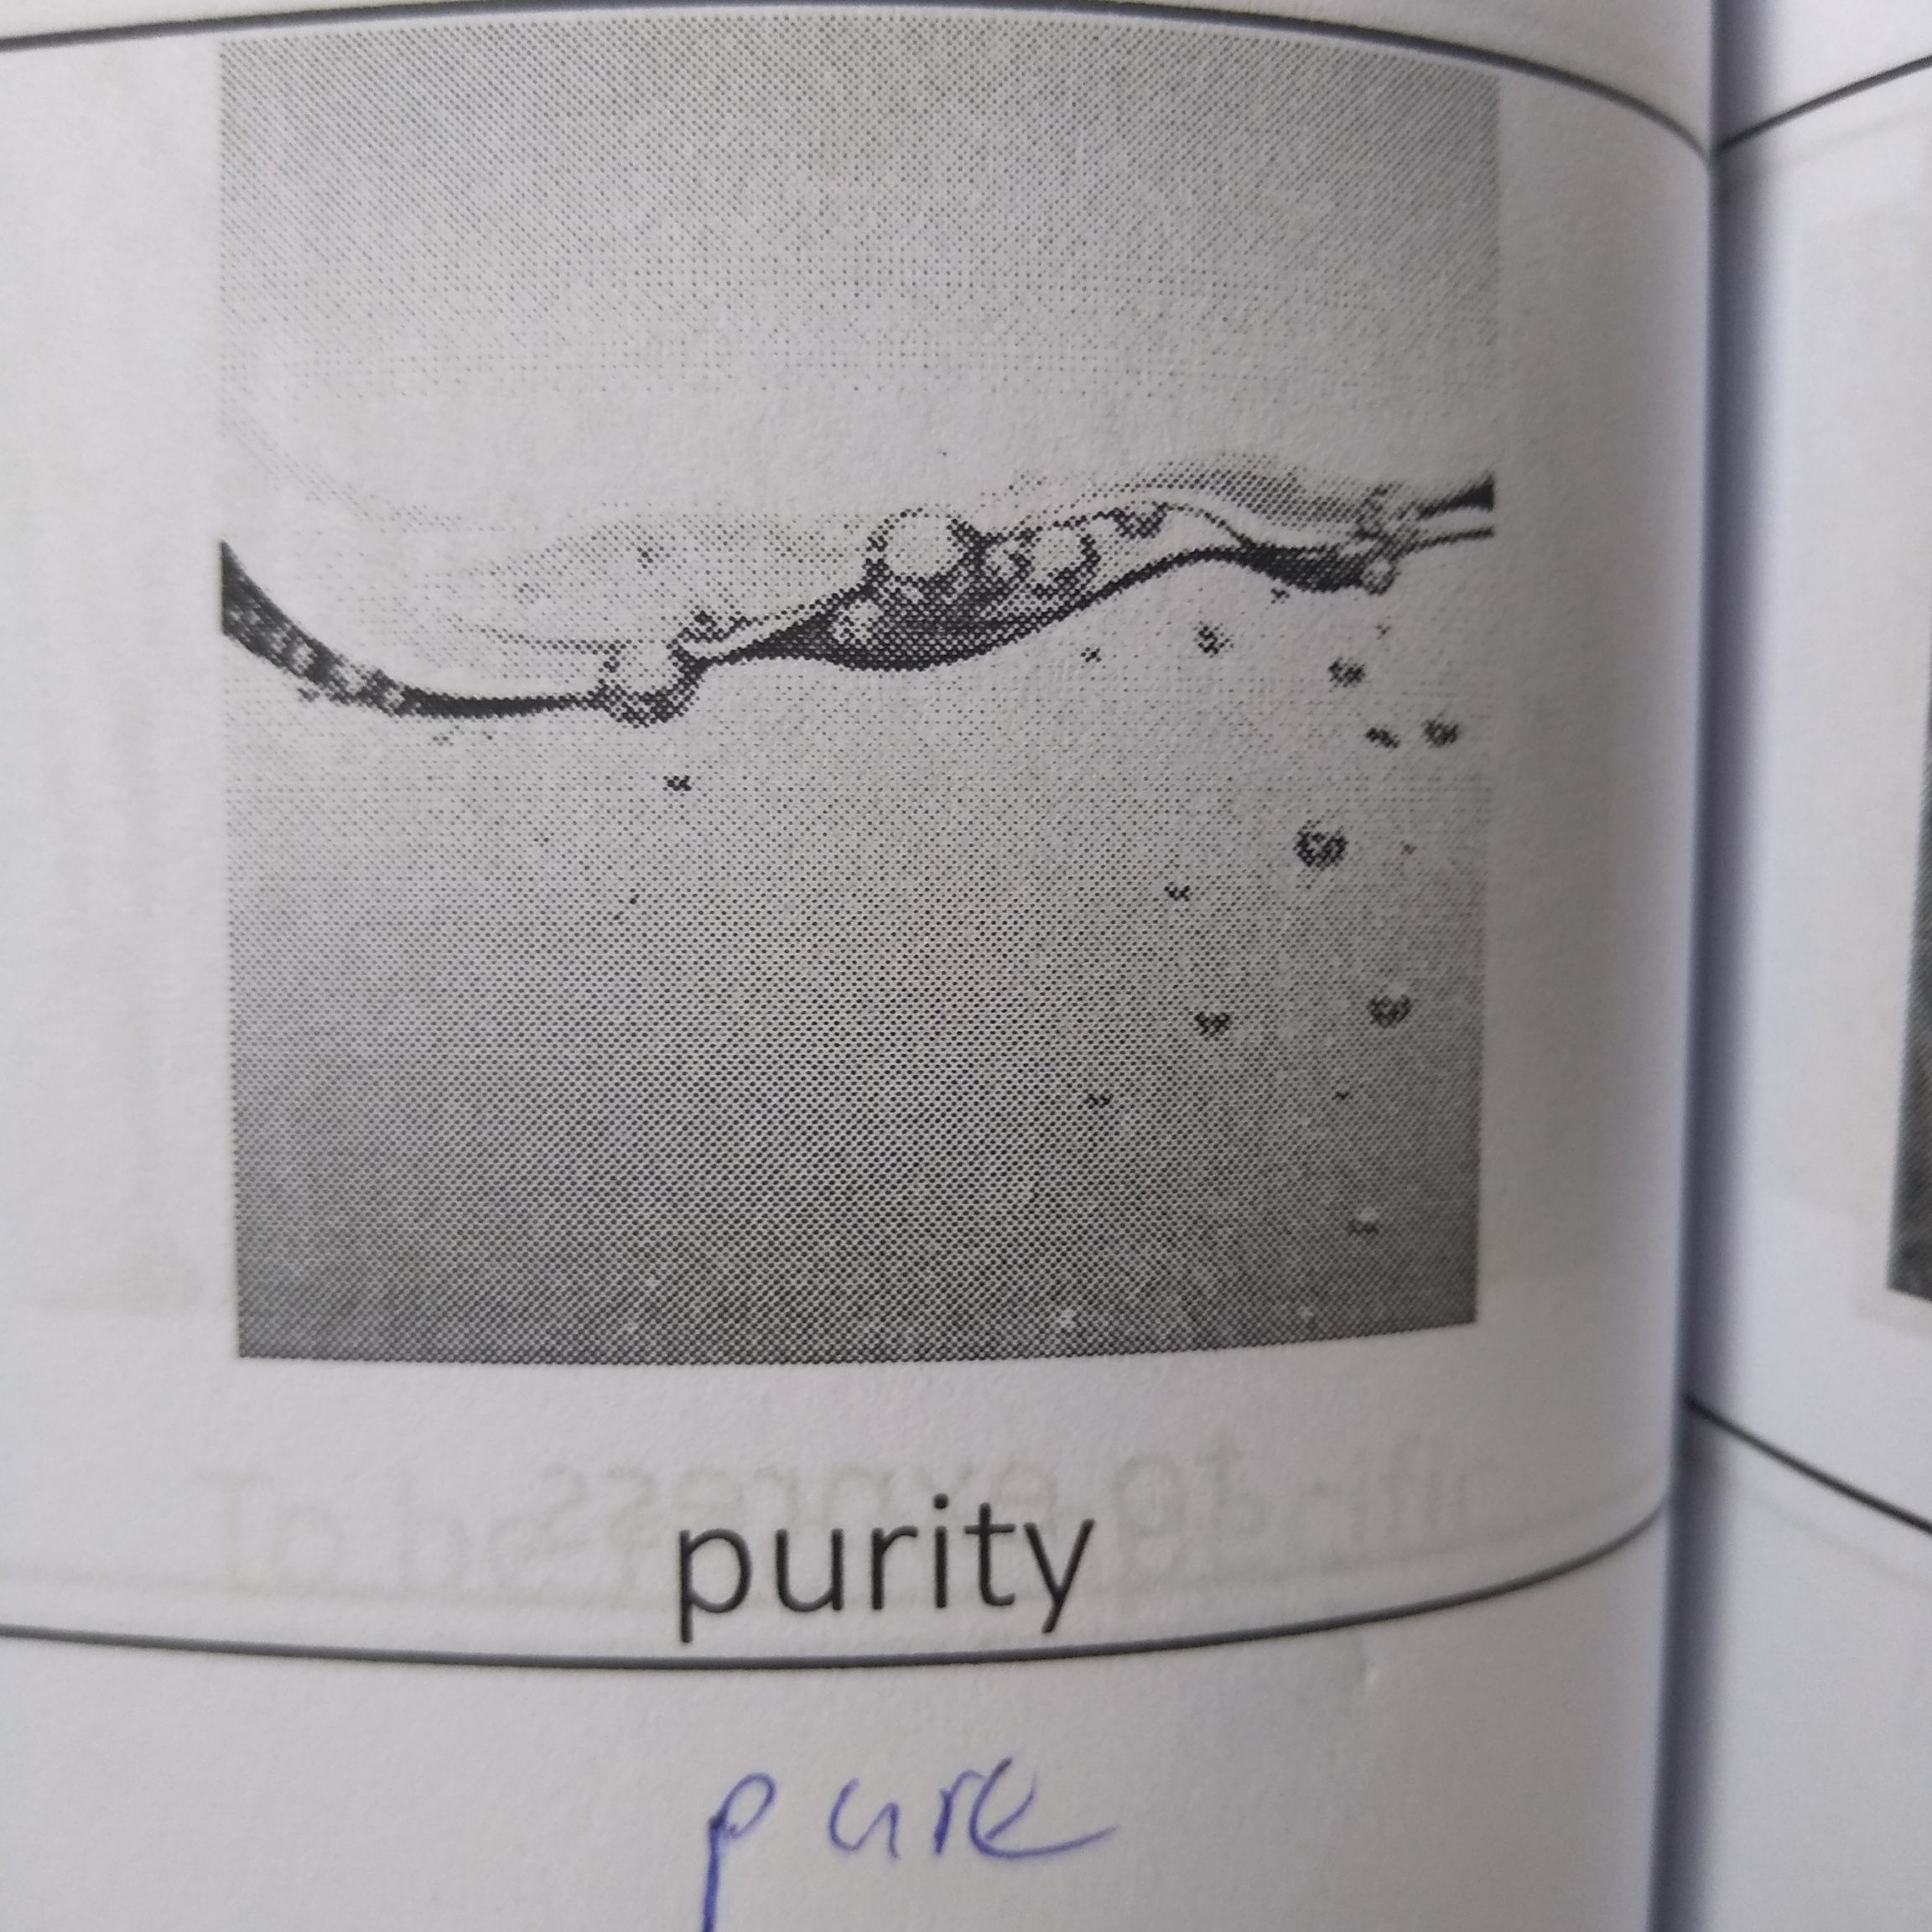 purity
pure